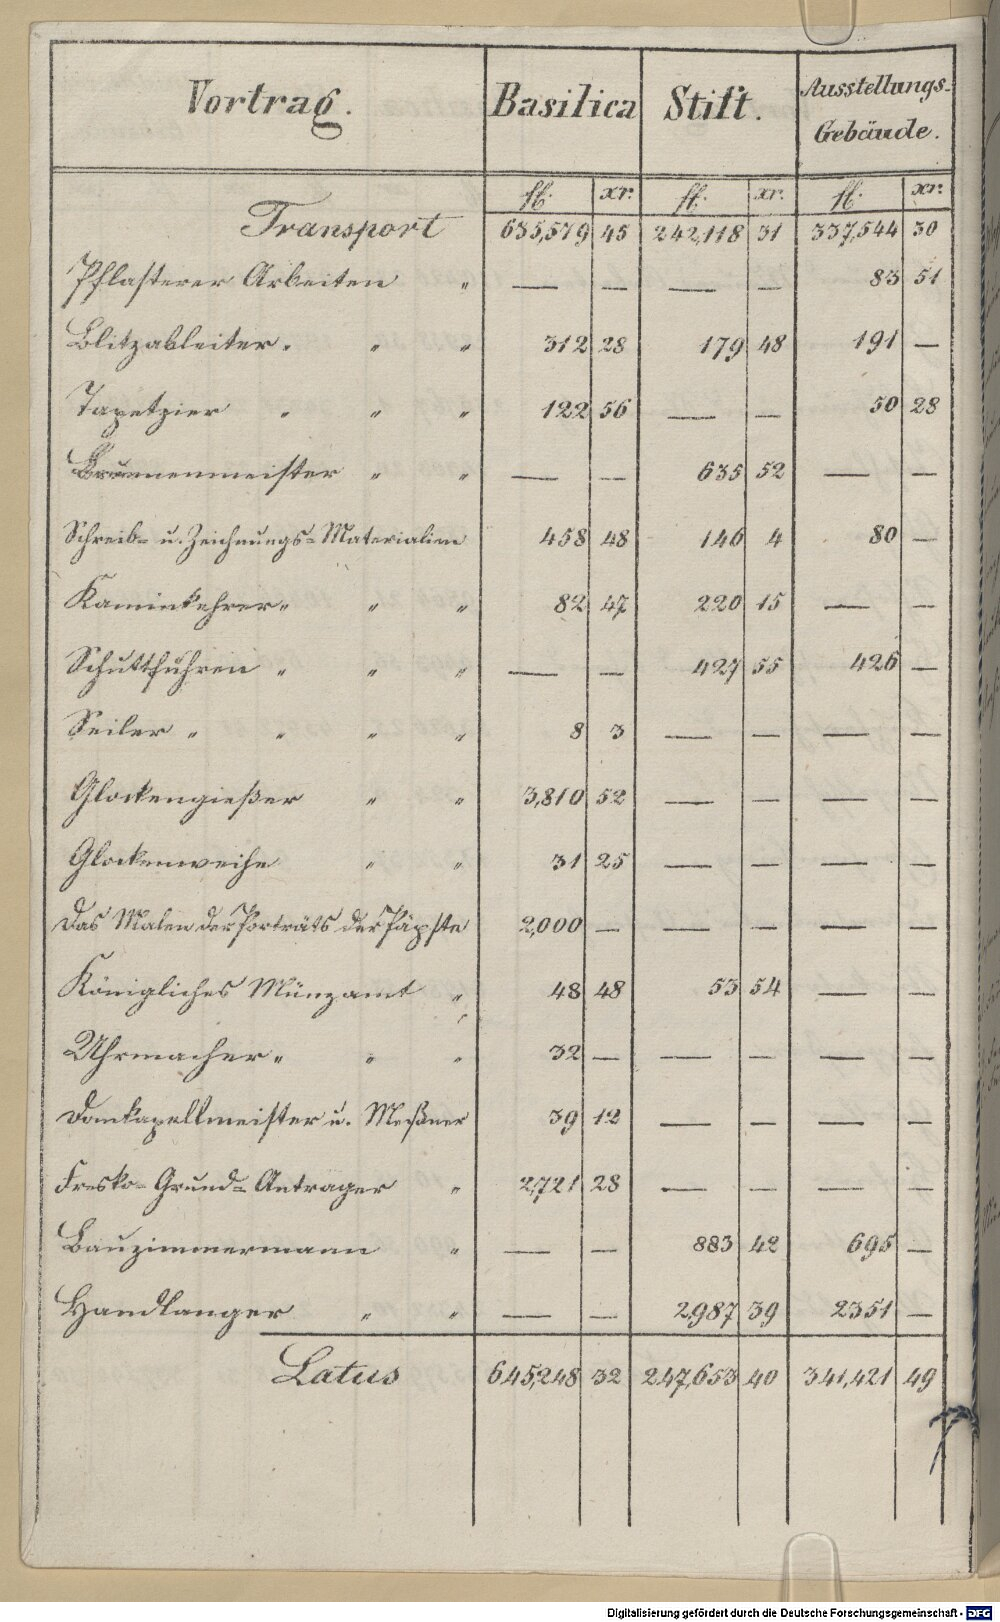 Vortrag. Basilica Stift. Ausstellungs-Gebäude.
fl. xr. fl. xr. fl. xr.
Transport 635,579 45 242,118 31 337,544 30
Pflasterer Arbeiten " — — — — 83 51
Blitzableiter " " " 312 28 179 48 191 —
Tapetzier " " " 122 56 — — 50 28
Brunnenmeister " " — — 635 52 — —
Schreib- u. Zeichnungs-Materialien 458 48 146 4 80 —
Kaminkehrer " " " 82 47 220 15 — —
Schuttfuhren " " " — — 427 55 426 —
Seiler " " " " 8 3 — — — —
Glockengießer " " 3,810 52 — — — —
Glockenweihe " " 31 25 — — — —
Das Malen der Porträts der Päpste 2,000 — — — — —
Königliches Münzamt " 48 48 53 54 — —
Uhrmacher " " " 32 — — — — —
Domkapellmeister u. Meßner 39 12 — — — —
Fresko-Grund-Antrager " 2,721 28 — — — —
Bauzimmermann " — — 883 42 695 —
Handlanger " " — — 2,987 39 2351 —
Latus 645,248 32 247,653 40 341,421 49
Digitalisierung gefördert durch die Deutsche Forschungsgemeinschaft - DFG